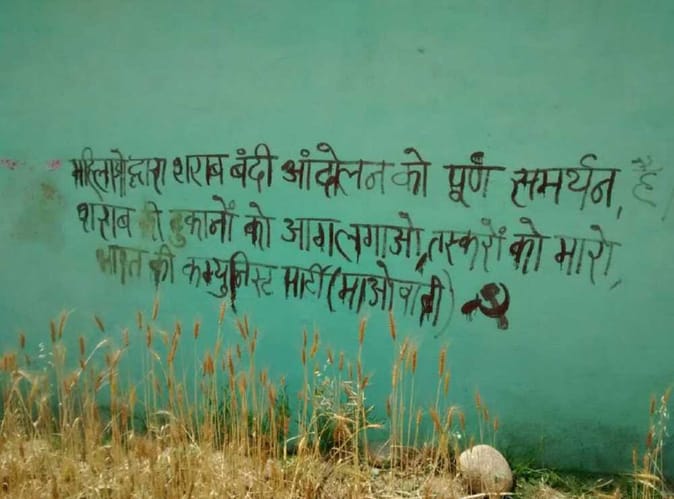 महिलाओं द्वारा शराब बंदी आंदोलन को पूर्ण समर्थन, है,
शराब की दुकानों को आग लगाओ, तस्करों को मारो,
भारत की कम्युनिस्ट पार्टी (माओवादी)